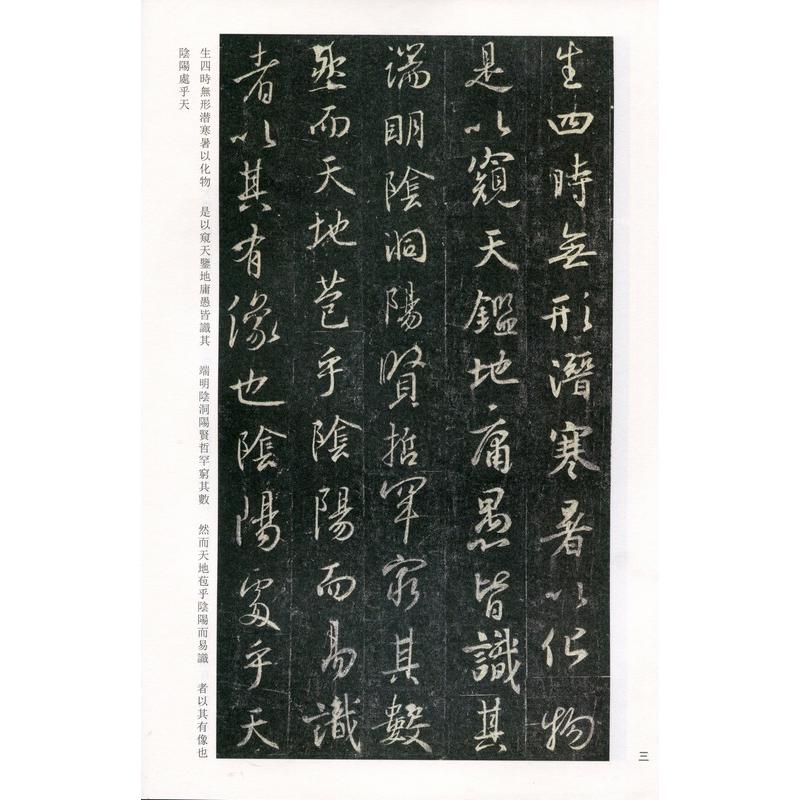 生四時無形潛寒暑以化物
是以窺天鑑地庸愚皆識其
端明陰洞陽賢哲罕窮其數
然而天地苞乎陰陽而易識
者以其有像也陰陽處乎天
三
生四時無形潜寒暑以化物 是以窺天鑒地庸愚皆識其 端明陰洞陽賢哲罕窮其數 然而天地苞乎陰陽而易識 者以其有像也
陰陽處乎天